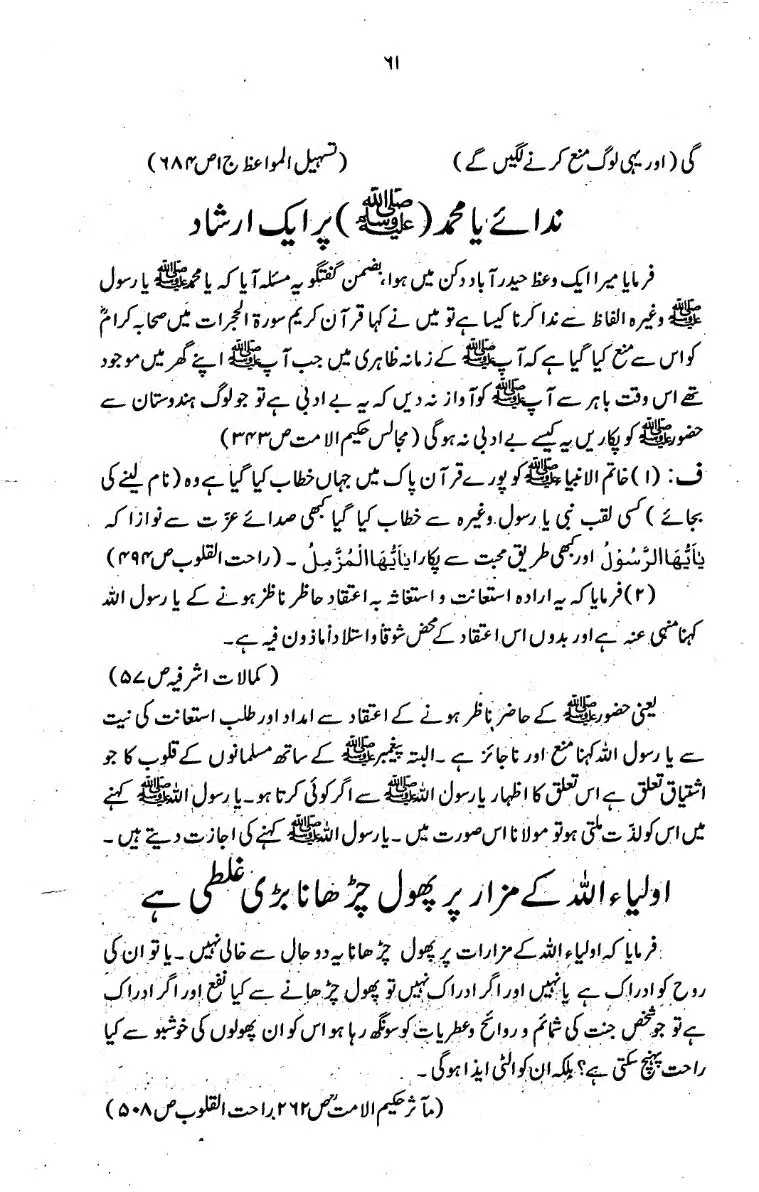 ۶۱
گی (اور یہی لوگ منع کرنے لگیں گے) (تسہیل المواعظ ج۱ص۶۸۴)
ندائے یا محمد (ﷺ) پر ایک ارشاد
فرمایا میرا ایک وعظ حیدر آباد دکن میں ہوا، بضمن گفتگو یہ مسئلہ آیا کہ یا محمدﷺ یا رسول
ﷺ وغیرہ الفاظ سے ندا کرنا کیسا ہے تو میں نے کہا قرآن کریم سورۃ الحجرات میں صحابہ کرامؓ
کو اس سے منع کیا گیا ہے کہ آپﷺ کے زمانہ ظاہری میں جب آپﷺ اپنے گھر میں موجود
تھے اس وقت باہر سے آپﷺ کو آواز نہ دیں کہ یہ بے ادبی ہے تو جو لوگ ہندوستان سے
حضورﷺ کو پکاریں یہ کیسے بے ادبی نہ ہوگی (مجالس حکیم الامت ص۳۴۳)
ف: (۱) خاتم الانبیاءﷺ کو پورے قرآن پاک میں جہاں خطاب کیا گیا ہے وہ (نام لینے کی
بجائے) کسی لقب نبی یا رسول وغیرہ سے خطاب کیا گیا کبھی صدائے عزت سے نوازا کہ
یٰاَیُّهَا الرَّسُوْلُ اور کبھی طریق محبت سے پکارا یٰاَیُّهَا الْمُزَّمِلُ ۔ (راحت القلوب ص۴۹۴)
(۲) فرمایا کہ بہ ارادہ استعانت و استغاثہ بہ اعتقاد حاظر ناظر ہونے کے یا رسول اللہ
کہنا منہی عنہ ہے اور بدوں اس اعتقاد کے محض شوقاً و استلاداً ماذون فیہ ہے۔
(کمالات اشرفیہ ص۵۷)
یعنی حضورﷺ کے حاضر ناظر ہونے کے اعتقاد سے امداد اور طلب استعانت کی نیت
سے یا رسول اللہ کہنا منع اور ناجائز ہے ۔ البتہ پیغمبرﷺ کے ساتھ مسلمانوں کے قلوب کا جو
اشتیاق تعلق ہے اس تعلق کا اظہار یا رسول اللہﷺ سے اگر کوئی کرتا ہو۔ یا رسول اللہﷺ کہنے
میں اس کو لذت ملتی ہو تو مولانا اس صورت میں ۔ یا رسول اللہﷺ کہنے کی اجازت دیتے ہیں ۔
اولیاء اللہ کے مزار پر پھول چڑھانا بڑی غلطی ہے
فرمایا کہ اولیاء اللہ کے مزارات پر پھول چڑھانا یہ دو حال سے خالی نہیں ۔ یا تو ان کی
روح کو ادراک ہے یا نہیں اور اگر ادراک نہیں تو پھول چڑھانے سے کیا نفع اور اگر ادراک
ہے تو جو شخص جنت کی شمائم و روائح و عطریات کو سونگھ رہا ہو اس کو ان پھولوں کی خوشبو سے کیا
راحت پہنچ سکتی ہے؟ بلکہ ان کو الٹی ایذا ہوگی ۔
(مآثر حکیم الامتؒ ص۲۶۲، راحت القلوب ص۵۰۸)